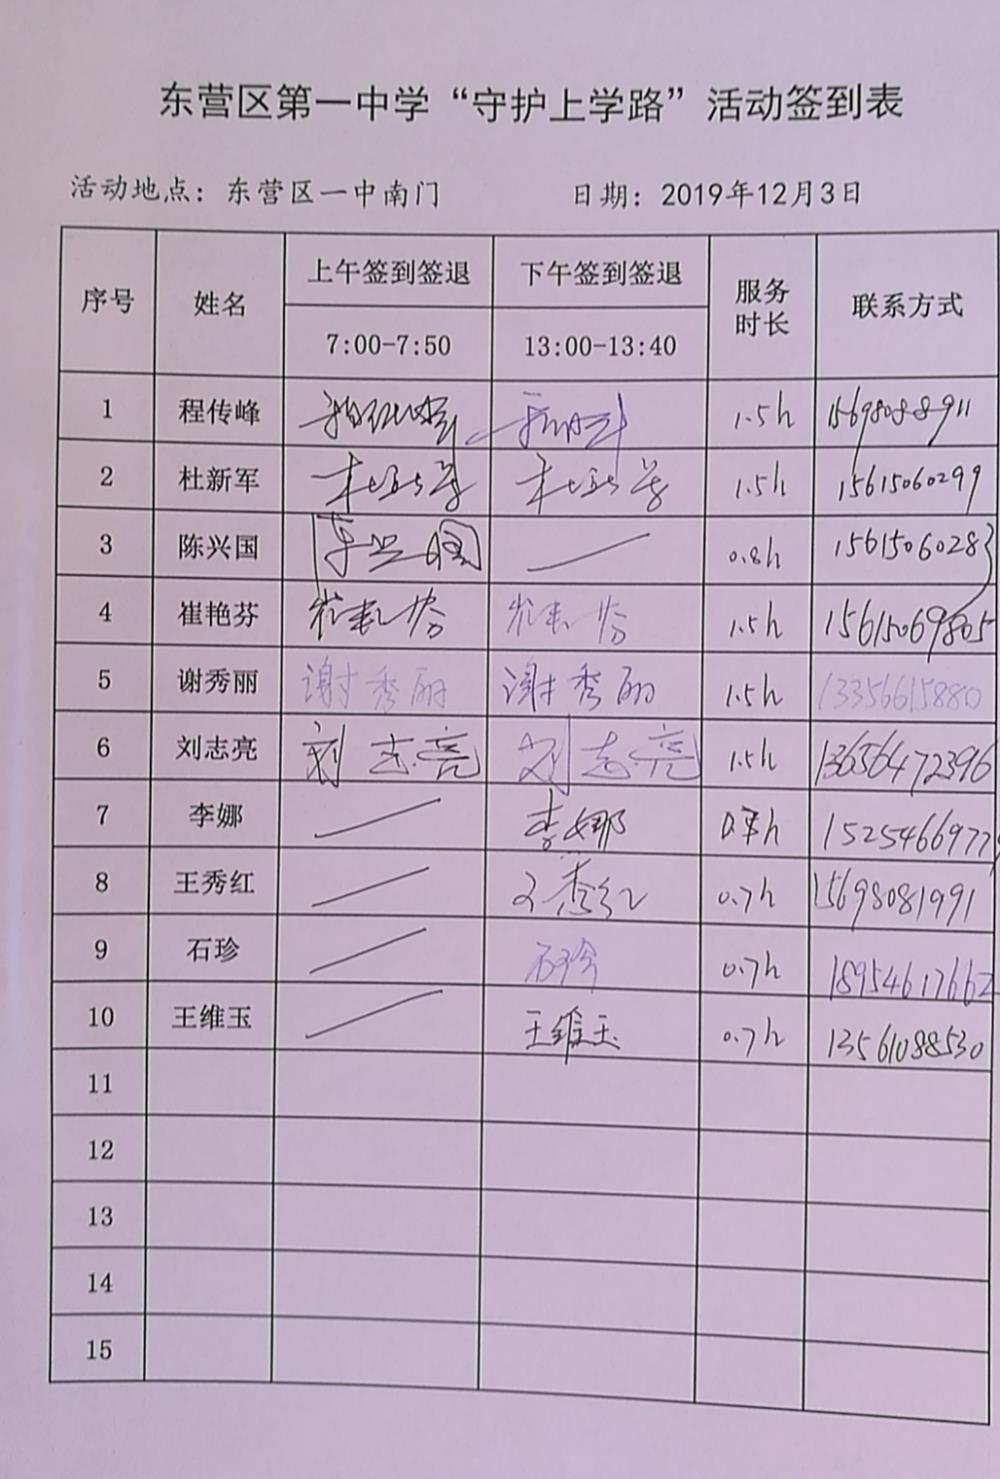 东营区第一中学“守护上学路”活动签到表
活动地点：东营区一中南门 日期：2019年12月3日
序号 姓名 上午签到签退 下午签到签退 服务时长 联系方式
7:00-7:50 13:00-13:40
1 程传峰 1.5h 15698088911
2 杜新军 杜新军 杜新军 1.5h 15615060299
3 陈兴国 陈兴国 — 0.8h 15615060283
4 崔艳芬 崔艳芬 崔艳芬 1.5h 15615069805
5 谢秀丽 谢秀丽 谢秀丽 1.5h 13356615880
6 刘志亮 刘志亮 刘志亮 1.5h 13656472396
7 李娜 — 李娜
8 王秀红 — 王秀红 0.7h 15698081991
9 石珍 — 石珍 0.7h 18954617662
10 王维玉 — 王维玉 0.7h 13561088530
11
12
13
14
15